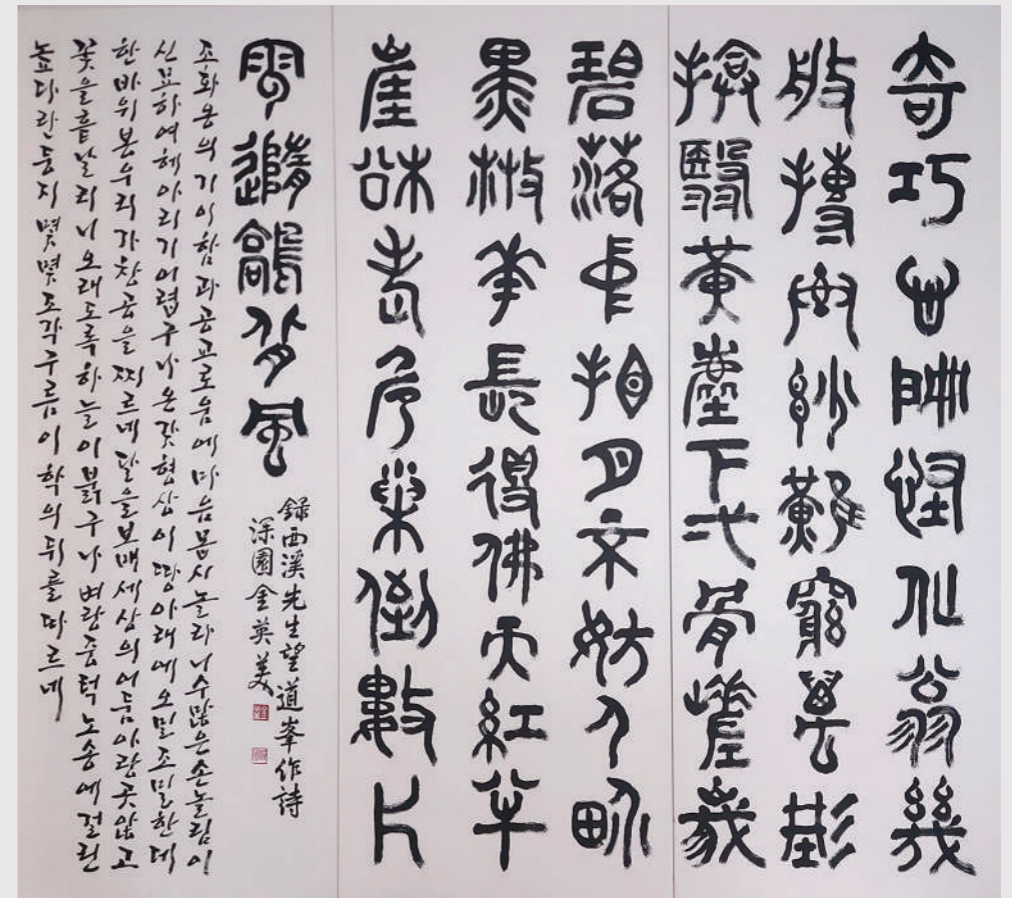 奇巧怪化翁幾
般弄妙難窮萬形
翳黃塵下弌骨嵯峨
碧落中指月不妨人畍
黑散華長得佛天紅半
崖松老危巢倒數片
雲隨鶴背風
錄西溪先生望道峯作詩
深園金英美
조화옹의 기이함과 공교로움에 마음 몹시 놀라니 수많은 손놀림이
신묘하여 헤아리기 어렵구나 온갖 형상이 땅아래에 오밀조밀한데
한 바위 봉우리가 창공을 찌르네 달을 보매 세상의 어둠 아랑곳 않고
꽃을 흩날리니 오래도록 하늘이 붉구나 벼랑 중턱 노송에 걸린
높다란 둥지 몇몇 조각구름이 학의 뒤를 따르네